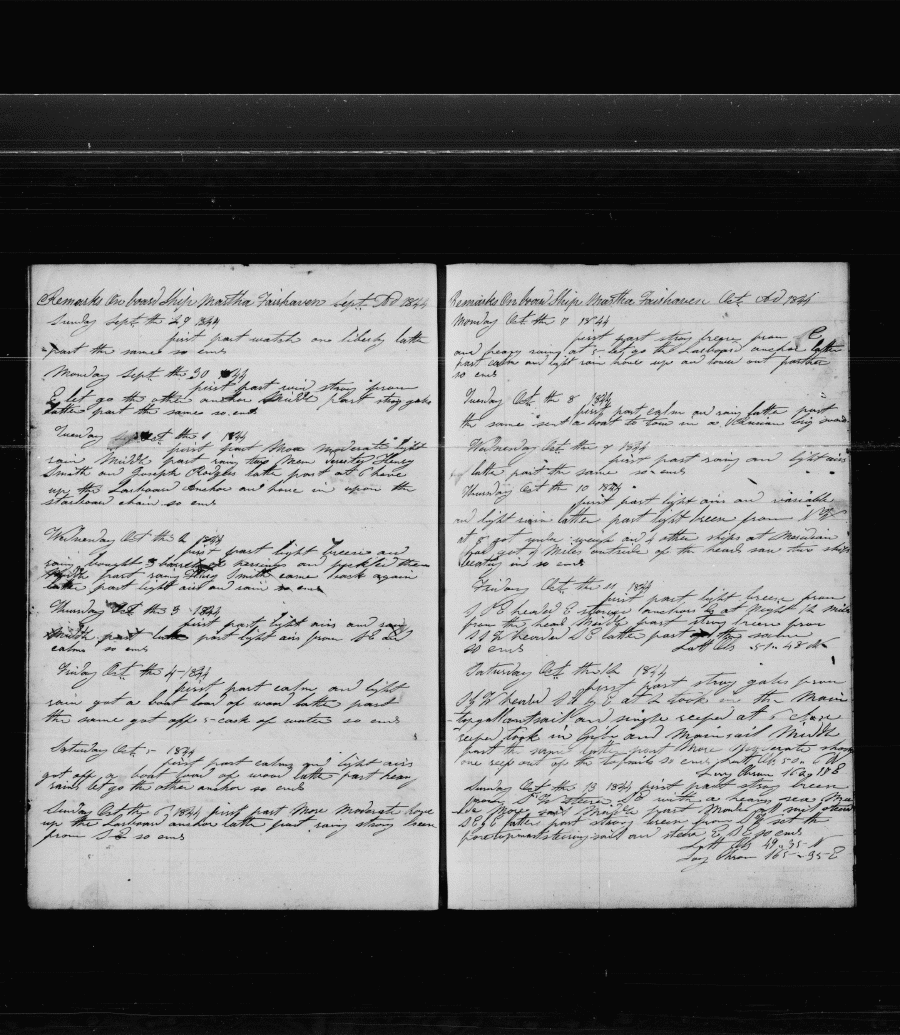 Remarks On board Ship Martha Fairhaven Sept. AD 1844
Sunday Sept. the 29 1844
first part watch on liberty latter
part the same so ends
Monday Sept. the 30 44
first part rain strong from
E let go the other anchor Middle part strong gales
latter part the same so ends
Tuesday Oct. the 1, 1844
first part More moderate light
rain Middle part rain two Men Henry
Smith and Joseph latter part at 6 hove
up the Larboard Anchor and hove in upon the
starboard chain so ends
Wednesday Oct the 2 1844
first part light breeze and
rain bought 3 of herrings and pickled them
Middle part rain Henry Smith came back again
latter part light airs and rain so ends
Thursday Oct the 3 1844
first part light airs and rain
Middle part latter part light airs from S E and
calms so ends
Friday Oct. the 4 1844
first part calm and light
rain got a boat load of wood latter part
the same got off 5 cask of water so ends
Saturday Oct. 5 1844
first part calms and light airs
got off a boat load of wood latter part heavy
rains let go the other anchor so ends
Sunday Oct the 6 1844 first part More Moderate hove
up the Larboard anchor latter part rainy strong breeze
from S E so ends
Remarks On board Ship Martha Fairhaven Oct. AD 1844
Monday Oct the 7 1844
first part strong breeze from E
and heavy rain at 5 let go the Larboard anchor latter
part calm and light rain hove up and lower out further
so ends
Tuesday Oct. the 8, 1844
first part calm and rainy latter part
the same sent a boat to tow in a Brig
Wednesday Oct the 9 1844
first part rainy and light airs
latter part the same so ends
Thursday Oct the 10 1844
first part light airs and variable
and light rain latter part light breeze from
at 8 got under weigh and 4 other ships at Meridian
had got 9 Miles outside of the heads saw two ships
beating in so ends
Friday Oct. the 11 1844
first part light breeze from
headed E anchors at Night 12 Miles
from the head Middle part strong breeze from
headed S E latter part the same
so ends Latt Ob 51 48 N
Saturday Oct the 12 1844
first part strong gales from
headed at 2 took in the Main
topgallantsail and single reefed at 5 close
reefed took in and Mainsail Middle
part the same latter part More Moderate shook
one reef out of the topsails so ends Latt Ob 50 N
Long Chron E
Sunday Oct the 13 1844 first part strong breeze
from steered S E with a heavy sea
Middle part
latter part strong breeze from set the
foretopmaststeering sail and steered E S E so ends
Latt Ob 49 35 N
Long Chron 165 35 E